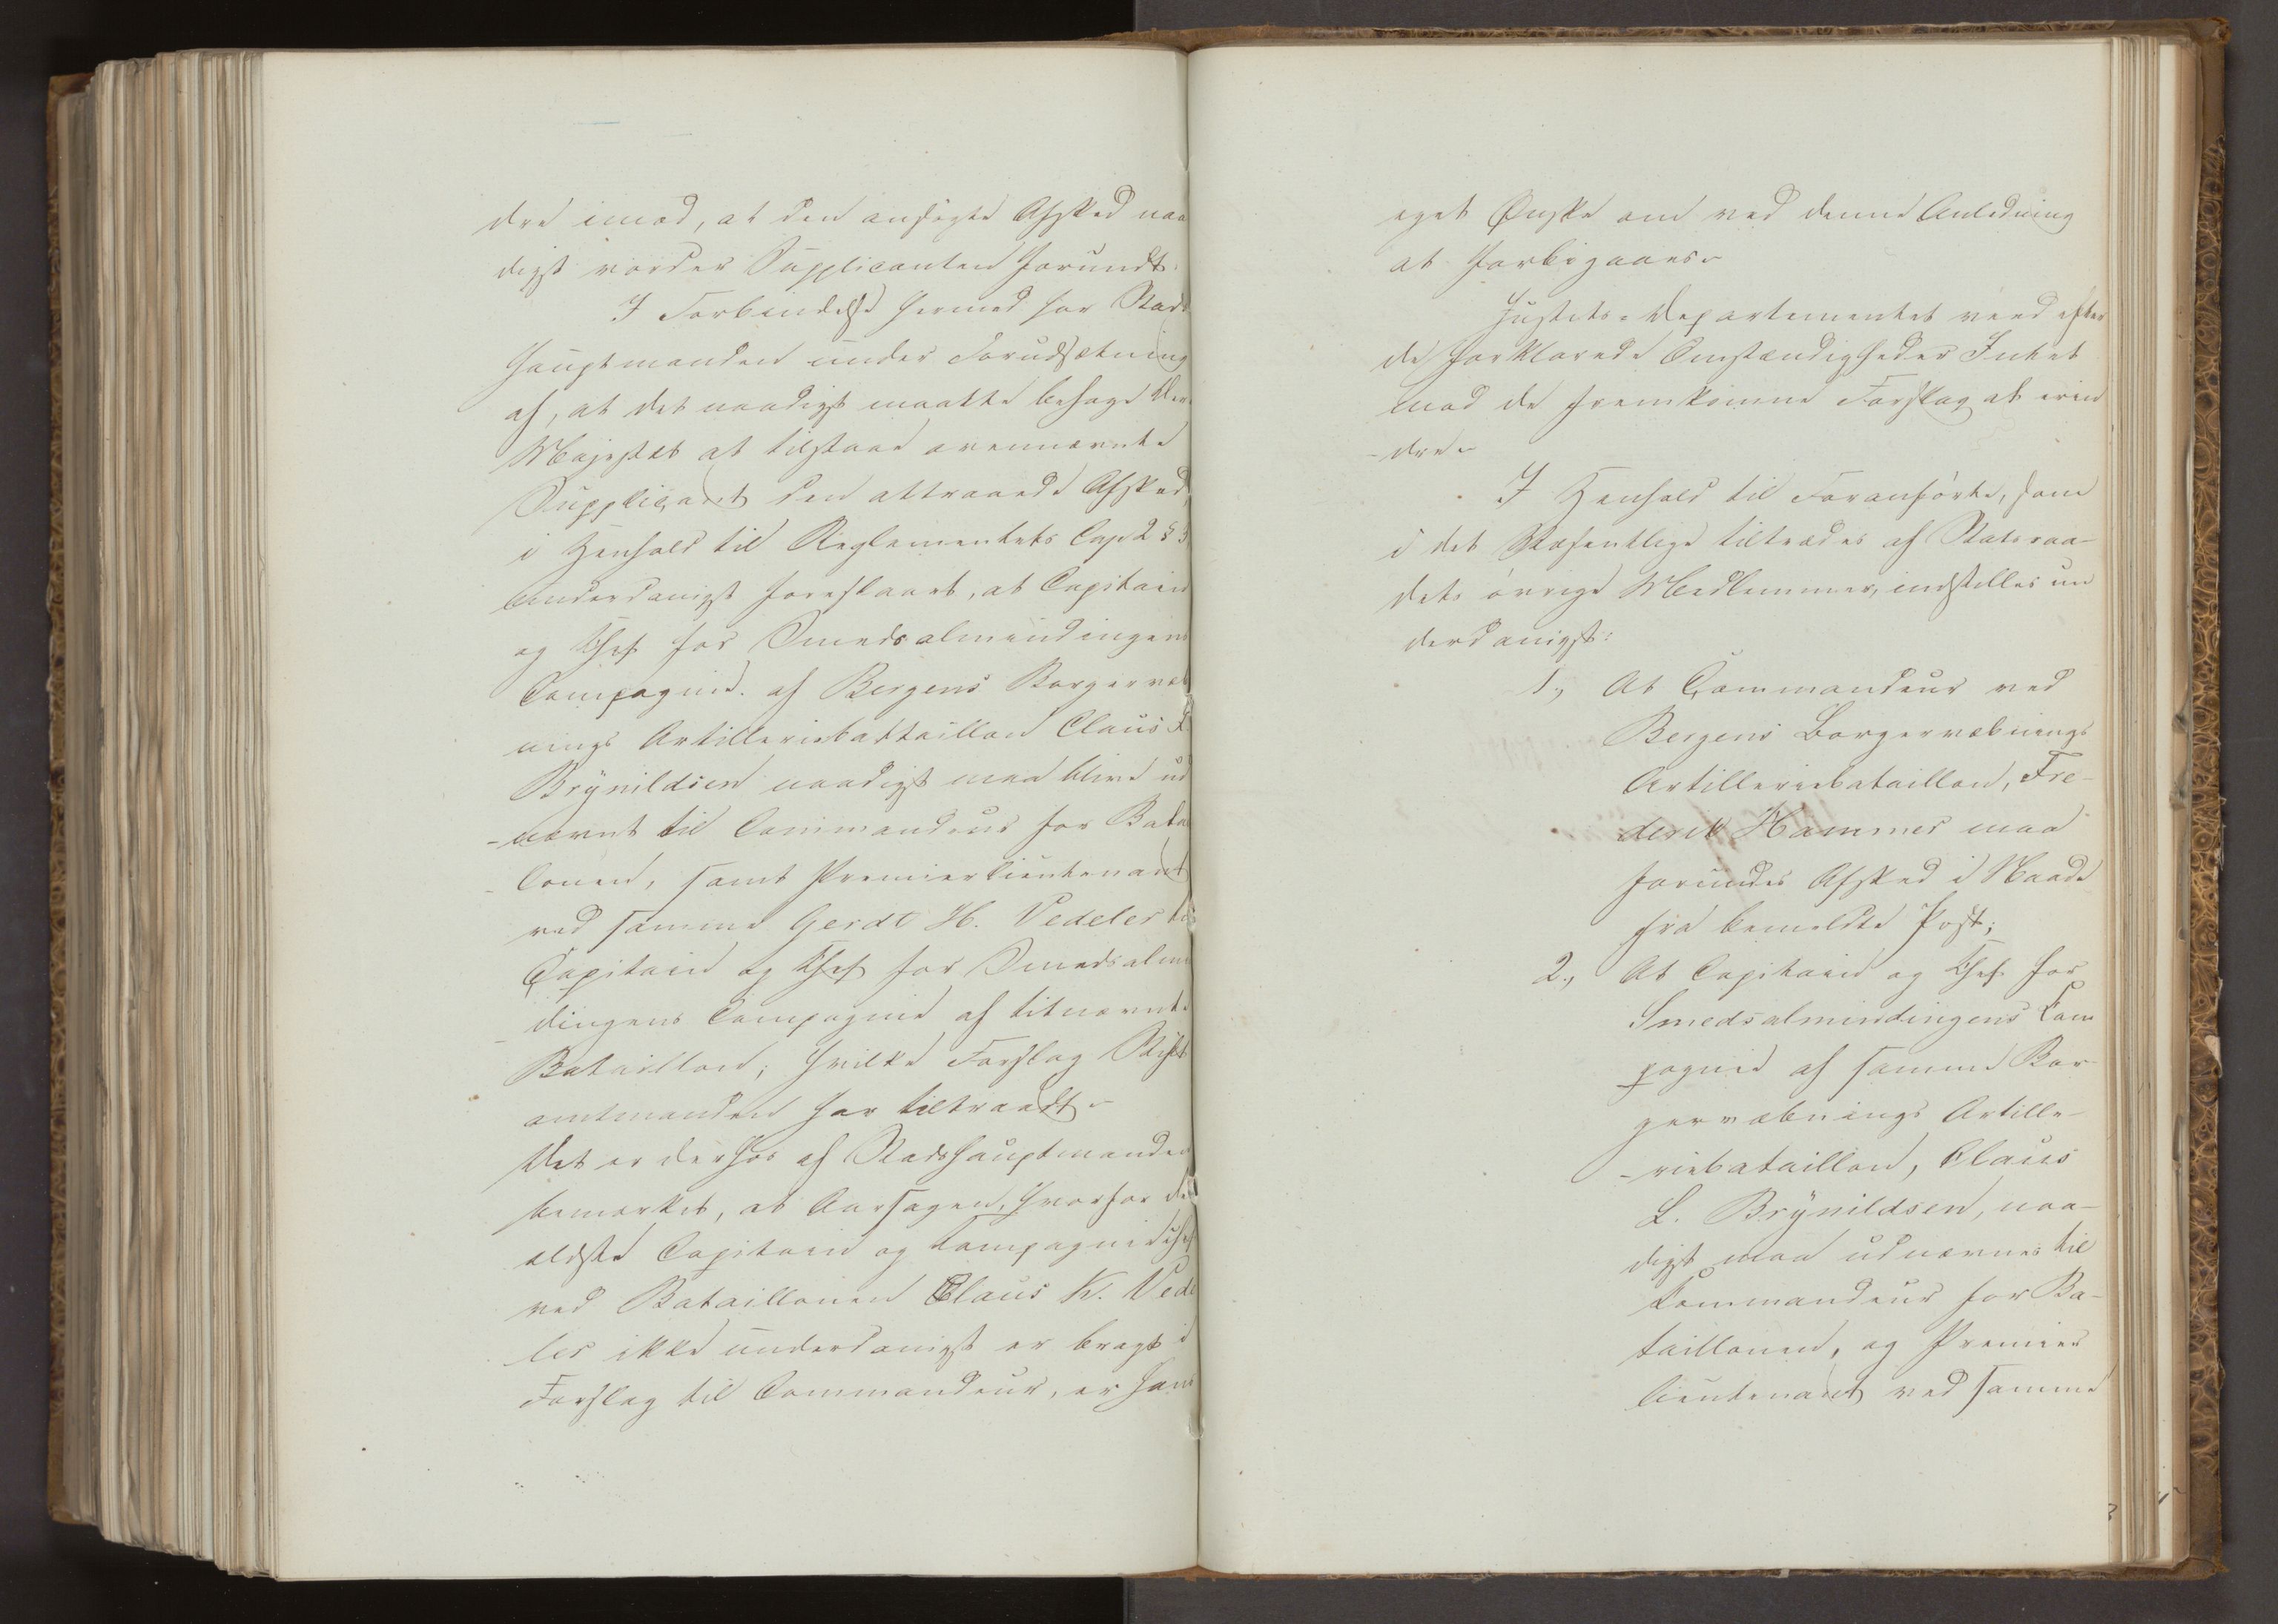 dre imod, at den ansøgte Afsked naa
digst vorder Supplicanten forundt.
I Forbindelse hermed har Stads
hauptmanden under Forudsætning
af, at det naadigst maatte behage Der
Majestæt at tilstaae ovennævnte
Supplicant den attraaede Afsked,
i Henhold til Reglementets Cap 2 § 3
underdanigst foreslaaet, at Capitain
og Chef for Smedsalmindingens
Compagnie af Bergens Borgervæb
nings Artilleriebattaillon Claus L.
Brÿnildsen naadigst maa blive ud
-nævnt til Commandeur for Batai
-lonen, samt Premierlieutenant
ved samme Gerdt H. Vedeler til
Capitain og Chef for Smedsalmi
-dingens Compagnie af titnævnte
Bataillon; hvilke Forslag Stifts
amtmanden har tiltraadt.
Det er derhos af Stadshauptmanden
bemærket, at Aarsagen, hvorfor den
ældste Capitain og Compagniechef
ved Bataillonen Claus K. Vede
ler ikke underdanigst er bragt i
Forslag til Commandeur, er hans
eget Ønske om ved denne Anledning
at forbigaaes.
Justits-Departementet veed efter
de forklarede Omstændigheder Intet
mod de fremkomne Forslag at erin
-dre.
I Henhold til Foranførte, som
i det Væsentlige tiltrædes af Statsraa-
dets øvrige Medlemmer, indstilles un
derdanigst:
1., At Commandeur ved
Bergens Borgervæbnings
Artilleriebataillon, Fre-
derik Hammer maa
forundes Afsked i Naade
fra bemeldte Post;
2., At Capitain og Chef for
Smedsalmindingens Com
pagnie af samme Bor-
gervæbnings Artille-
-riebataillon, Claus
L. Brÿnildsen, naa-
digst maa udnævnes til
Commandeur for Ba-
taillonen, og Premier
lieutenant ved samme